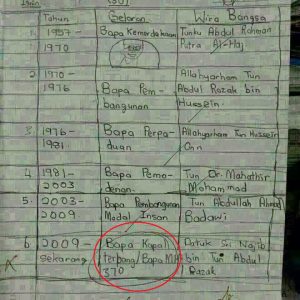 Tahun
Gelaran
Wira Bangsa
1. 1957-
1970
Bapa Kemerdekaan
Tunku Abdul Rahman
Putra Al-Haj
2. 1970-
1976
Bapa Pem-
bangunan
Allahyarham Tun
Abdul Razak bin
Hussein.
3. 1976-
1981
Bapa Perpa-
duan
Allahyarham Tun Hussein
Onn
4. 1981-
2003
Bapa Pemo-
denan.
Tun Dr. Mahathir
Mohammad
5. 2003-
2009
Bapa Pembangunan
Modal Insan
Tun Abdullah Ahmad
Badawi
6. 2009-
Sekarang
Bapa Kapal
terbang/Bapa MH
370
Datuk Sri Najib
bin Tun Abdul
Razak